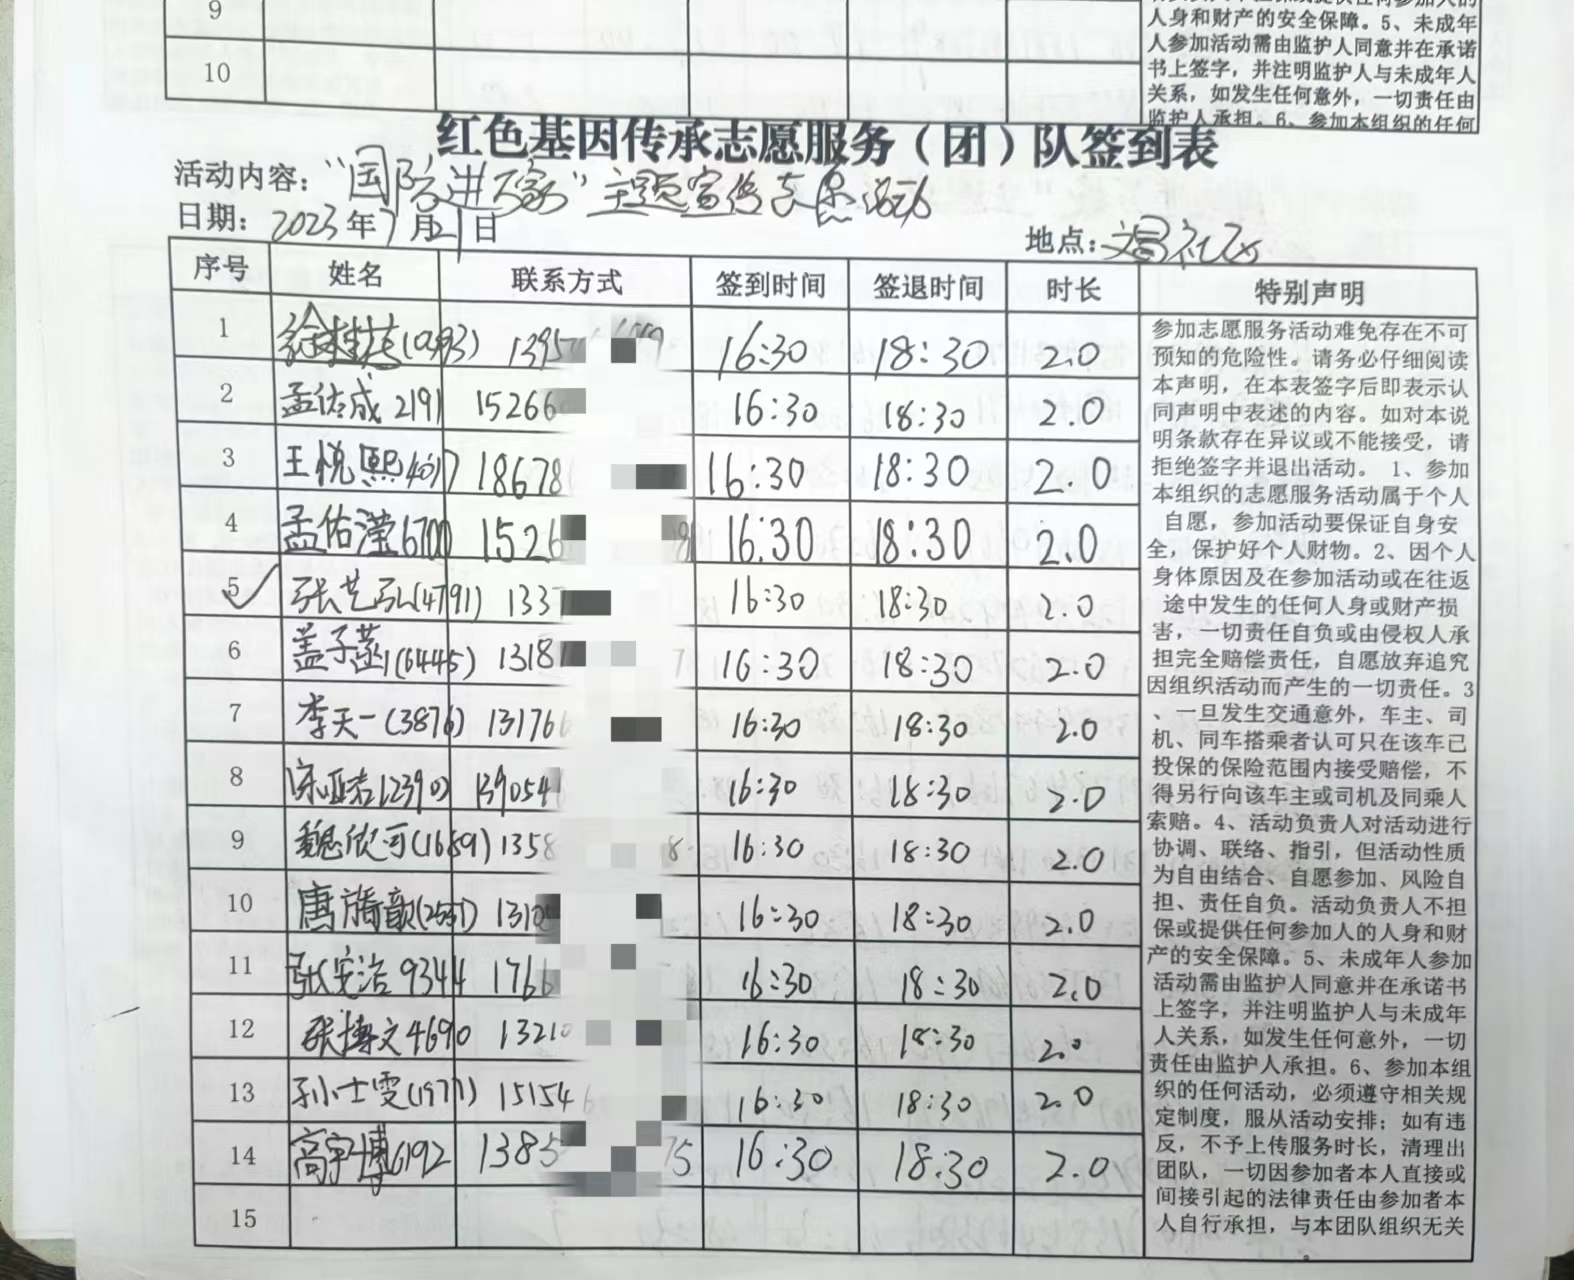 9
10
人身和财产的安全保障。5、未成年
人参加活动需由监护人同意并在承诺
书上签字，并注明监护人与未成年人
关系，如发生任何意外，一切责任由
监护人承担。6、参加本组织的任何
红色基因传承志愿服务（团）队签到表
活动内容：“国防进万家”主题宣传志愿活动
日期：2023年7月21日
地点： 社区
序号 姓名 联系方式 签到时间 签退时间 时长 特别声明
1 徐梓 1395 16:30 18:30 2.0
2 孟佑成 2191 15266 16:30 18:30 2.0
3 王悦熙 4017 18678 16:30 18:30 2.0
4 孟佑滢 6700 1526 16:30 18:30 2.0
5 张艺 (4791) 133 16:30 18:30 2.0
6 盖子 (6445) 1318 7 16:30 18:30 2.0
7 李天一 (3876) 13176 16:30 18:30 2.0
8 139054 16:30 18:30 2.0
9 魏欣可 (1689) 1358 8 16:30 18:30 2.0
10 唐 歆 1310 16:30 18:30 2.0
11 张宪浩 9344 176 16:30 18:30 2.0
12 张博文 4690 1321 16:30 18:30 2.0
13 孙士雯 (1977) 15154 16:30 18:30 2.0
14 高宇博 6192 1385 75 16:30 18:30 2.0
15
参加志愿服务活动难免存在不可
预知的危险性。请务必仔细阅读
本声明，在本表签字后即表示认
同声明中表述的内容。如对本说
明条款存在异议或不能接受，请
拒绝签字并退出活动。1、参加
本组织的志愿服务活动属于个人
自愿，参加活动要保证自身安
全，保护好个人财物。2、因个人
身体原因及在参加活动或在往返
途中发生的任何人身或财产损
害，一切责任自负或由侵权人承
担完全赔偿责任，自愿放弃追究
因组织活动而产生的一切责任。3
、一旦发生交通意外，车主、司
机、同车搭乘者认可只在该车已
投保的保险范围内接受赔偿，不
得另行向该车主或司机及同乘人
索赔。4、活动负责人对活动进行
协调、联络、指引，但活动性质
为自由结合、自愿参加、风险自
担、责任自负。活动负责人不担
保或提供任何参加人的人身和财
产的安全保障。5、未成年人参加
活动需由监护人同意并在承诺书
上签字，并注明监护人与未成年
人关系，如发生任何意外，一切
责任由监护人承担。6、参加本组
织的任何活动，必须遵守相关规
定制度，服从活动安排；如有违
反，不予上传服务时长，清理出
团队，一切因参加者本人直接或
间接引起的法律责任由参加者本
人自行承担，与本团队组织无关